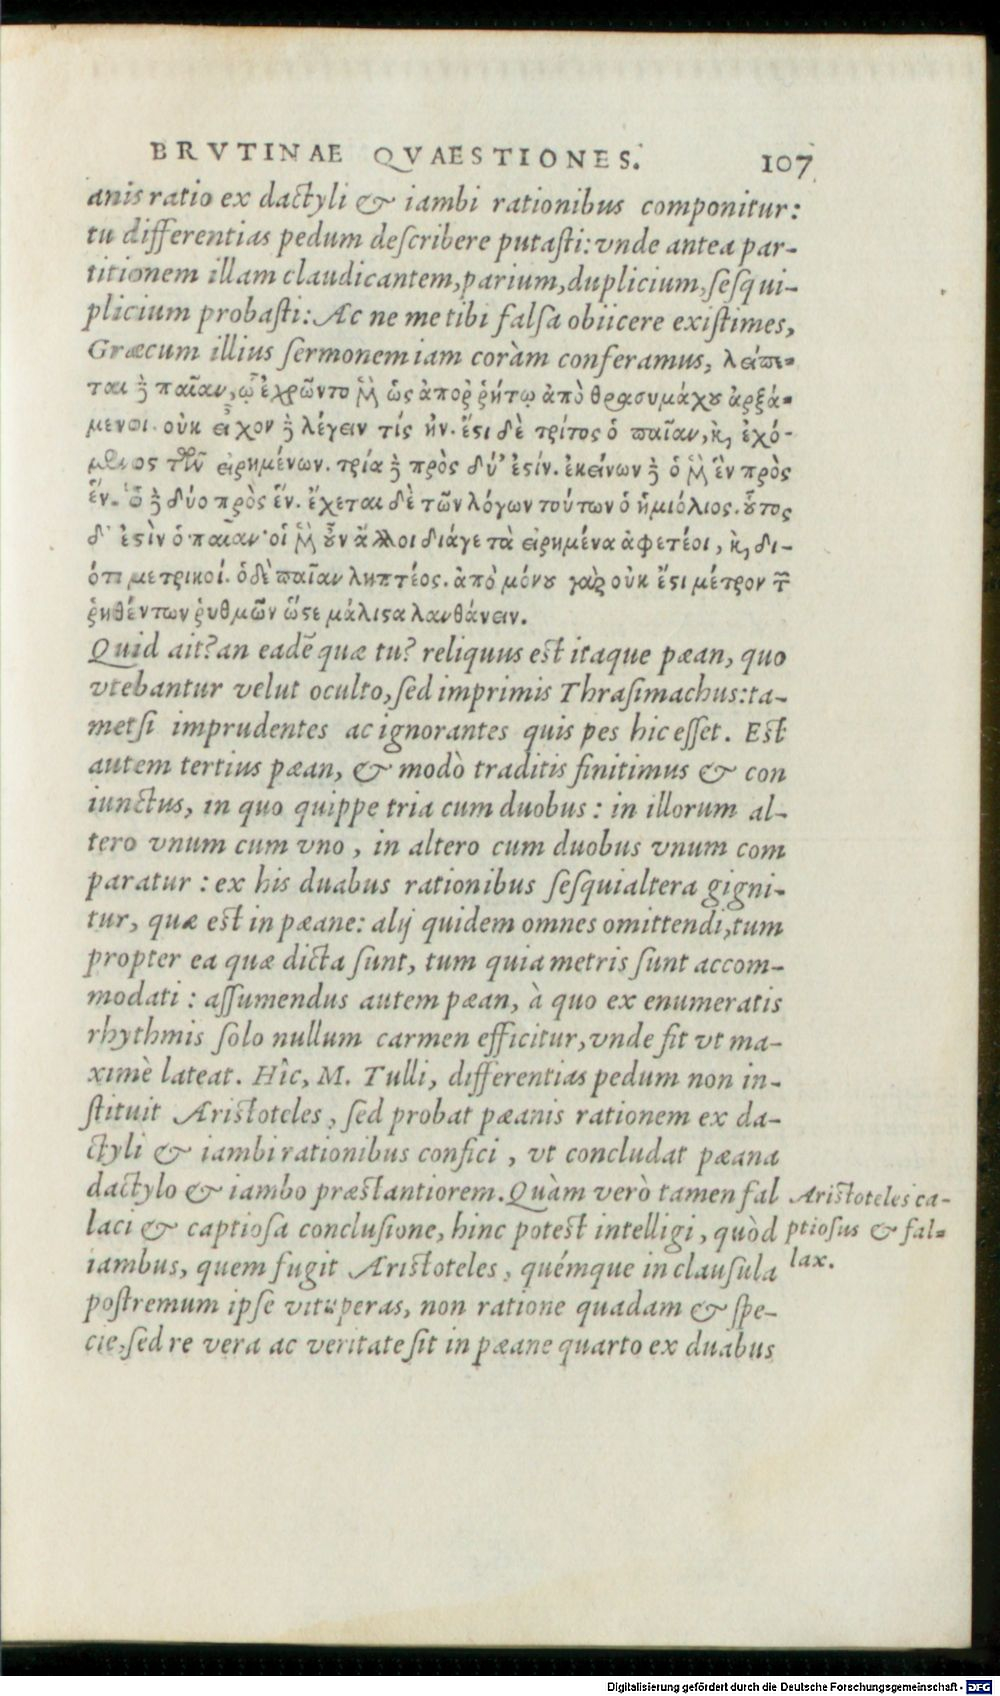 BRVTINAE QVAESTIONES. 107
anis ratio ex dactyli & iambi rationibus componitur:
tu differentias pedum deſcribere putaſti: vnde antea par-
titionem illam claudicantem, parium, duplicium, ſeſqui-
plicium probaſti: Ac ne me tibi falſa obiicere exiſtimes,
Græcum illius ſermonem iam coràm conferamus, λείπε-
ται δὲ παῖαν, ᾧ ἐχρῶντο μὲν ὡς ἀποῤῥήτῳ ἀπὸ θρασυμάχου ἀρξά-
μενοι. οὐκ εἶχον δὲ λέγειν τίς ἦν. ἔϛι δὲ τρίτος ὁ παῖαν, καὶ ἐχό-
μενος τῶν εἰρημένων. τρία δὲ πρὸς δύ' ἐϛίν. ἐκείνων δὲ ὁ μὲν ἓν πρὸς
ἕν. ὁ δὲ δύο πρὸς ἕν. ἔχεται δὲ τῶν λόγων τούτων ὁ ἡμιόλιος. οὗτος
δ' ἐϛὶν ὁ παῖαν· οἱ μὲν οὖν ἄλλοι διάγε τὰ εἰρημένα ἀφετέοι, καὶ δι-
ότι μετρικοί. ὁ δὲ παῖαν ληπτέος. ἀπὸ μόνου γὰρ οὐκ ἔϛι μέτρον τῶν
ῥηθέντων ῥυθμῶν ὥϛε μάλιϛα λανθάνειν.
Quid ait? an eadē quæ tu? reliquus est itaque pæan, quo
vtebantur velut oculto, ſed imprimis Thraſimachus: ta-
metſi imprudentes ac ignorantes quis pes hic eſſet. Est
autem tertius pæan, & modò traditis finitimus & con
iunctus, in quo quippe tria cum duobus: in illorum al-
tero vnum cum vno, in altero cum duobus vnum com
paratur: ex his duabus rationibus ſeſquialtera gigni-
tur, quæ est in pæane: alij quidem omnes omittendi, tum
propter ea quæ dicta ſunt, tum quia metris ſunt accom-
modati: aſſumendus autem pæan, à quo ex enumeratis
rhythmis ſolo nullum carmen efficitur, vnde fit vt ma-
ximè lateat. Hîc, M. Tulli, differentias pedum non in-
ſtituit Ariſtoteles, ſed probat pæanis rationem ex da-
ctyli & iambi rationibus confici, vt concludat pæana
dactylo & iambo præstantiorem. Quàm verò tamen fal
laci & captioſa concluſione, hinc potest intelligi, quòd
iambus, quem fugit Ariſtoteles, quémque in clauſula
poſtremum ipſe vituperas, non ratione quadam & ſpe-
cie, ſed re vera ac veritate ſit in pæane quarto ex duabus
Ariſtoteles ca-
ptioſus & fal-
lax.
Digitalisierung gefördert durch die Deutsche Forschungsgemeinschaft - DFG